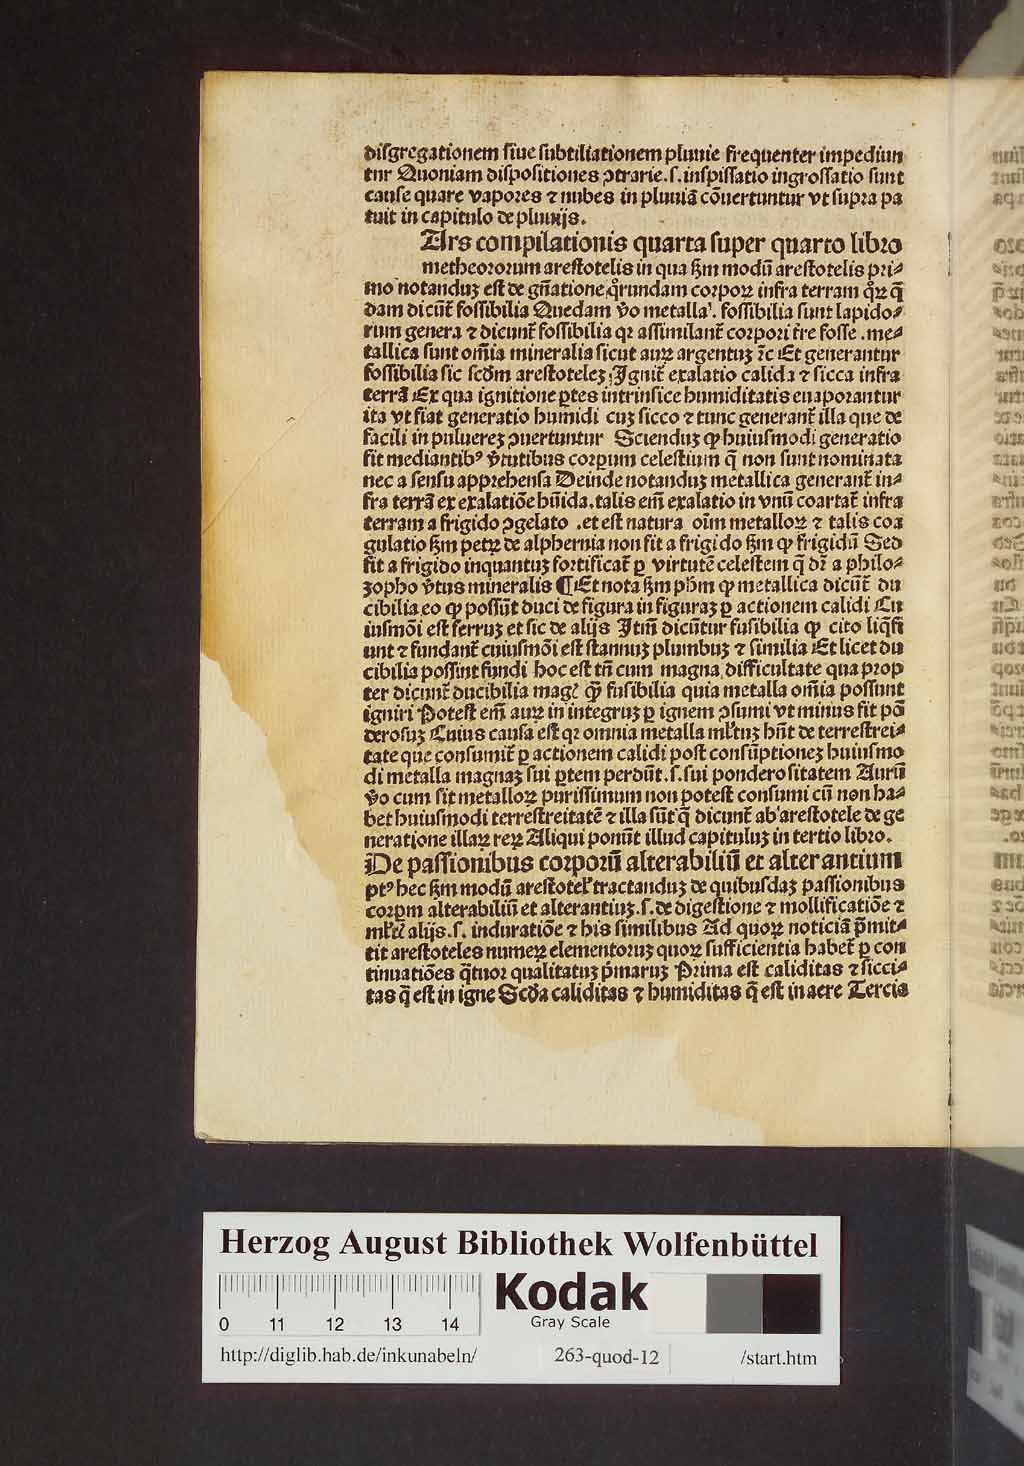 disgregationem siue subtiliationem pluuie frequenter impediun
tur Quoniam dispositiones ↄtrarie.s.inspissatio ingrossatio sunt
cause quare vapores ⁊ nubes in pluuiā cōuertuntur vt supra pa
tuit in capitulo de pluuijs.
Ars compilationis quarta super quarto libro
metheororum arestotelis in qua ẜm modū arestotelis pri⸗
mo notanduꝫ est de gn̄atione q̊rundam corpoꝝ infra terram qͦꝝ q̄
dam dicūt̄ fossibilia Quedam v̄o metalla'. fossibilia sunt lapido⸗
rum genera ⁊ dicunt̄ fossibilia qꝛ assimilant̄ corpori tr̄e fosse .me⸗
tallica sunt om̄ia mineralia sicut auꝝ argentuꝫ ⁊c̄ Et generantur
fossibilia sic scd̄m arestoteleꝫ Ignit̄ exalatio calida ⁊ sicca infra
terrā Ex qua ignitione ꝑtes intrinsice humiditatis euaporantur
ita vt fiat generatio humidi cuꝫ sicco ⁊ tunc generant̄ illa que de
facili in puluereꝫ ↄuertuntur Scienduꝫ ꝙ huiusmodi generatio
fit mediantibꝰ v̄tutibus corpum celestium q̄ non sunt nominata
nec a sensu apprehensa Deinde notanduꝫ metallica generant̄ in⸗
fra terrā ex exalatiōe hūida.talis em̄ exalatio in vnū coartat̄ infra
terram a frigido ↄgelato .et est natura oīm metalloꝝ ⁊ talis coa
gulatio ẜm petꝝ de alphernia non fit a frigido ẜm ꝙ frigidū Sed
fit a frigido inquantuꝫ fortificat̄ ꝑ virtutē celestem q̄ dr̄ a philo⸗
zopho v̄tus mineralis ¶Et nota ẜm ph̄m ꝙ metallica dicūt̄ du
cibilia eo ꝙ possūt duci de figura in figuraꝫ ꝑ actionem calidi Cu
iusmōi est ferruꝫ et sic de alijs Itm̄ dicūtur fusibilia ꝙ cito liq̄fi
unt ⁊ fundant̄ cuiusmōi est stannuꝫ plumbuꝫ ⁊ similia Et licet du
cibilia possint fundi hoc est tn̄ cum magna difficultate qua prop
ter dicunt̄ ducibilia mag̃ ꝙ̄ fusibilia quia metalla om̄ia possunt
igniri Potest em̄ auꝝ in integruꝫ ꝑ ignem ↄsumi vt minus fit pō
derosuꝫ Cuius causa est qꝛ omnia metalla ml̄tuꝫ hn̄t de terrestrei⸗
tate que consumit̄ ꝑ actionem calidi post consūptioneꝫ huiusmo
di metalla magnaꝫ sui ꝑtem perdūt.s.sui ponderositatem Aurū
v̄o cum sit metalloꝝ purissimum non potest consumi cū non ha⸗
bet huiusmodi terrestreitatē ⁊ illa sūt q̄ dicunt̄ ab arestotele de ge
neratione illaꝝ reꝝ Aliqui ponūt illud capituluꝫ in tertio libro.
De passionibus corporū alterabiliū et alterantium
ptꝰ hec ẜm modū arestotel̄ tractanduꝫ de quibusdaꝫ passionibus
corꝑm alterabiliū et alterantiuꝫ.s.de digestione ⁊ mollificatiōe ⁊
ml̄t̄ alijs.s. induratiōe ⁊ his similibus Ad quoꝝ noticiā p̄mit⸗
tit arestoteles numeꝝ elementoruꝫ quoꝝ sufficientia habet̄ ꝑ con
tinuatiōes q̄tuor qualitatuꝫ p̄maruꝫ Prima est caliditas ⁊ sicci⸗
tas q̄ est in igne Scd̄a caliditas ⁊ humiditas q̄ est in aere Tercia
Herzog August Bibliothek Wolfenbüttel
0 11 12 13 14
Kodak
Gray Scale
http://diglib.hab.de/inkunabeln/ 263-quod-12 /start.htm